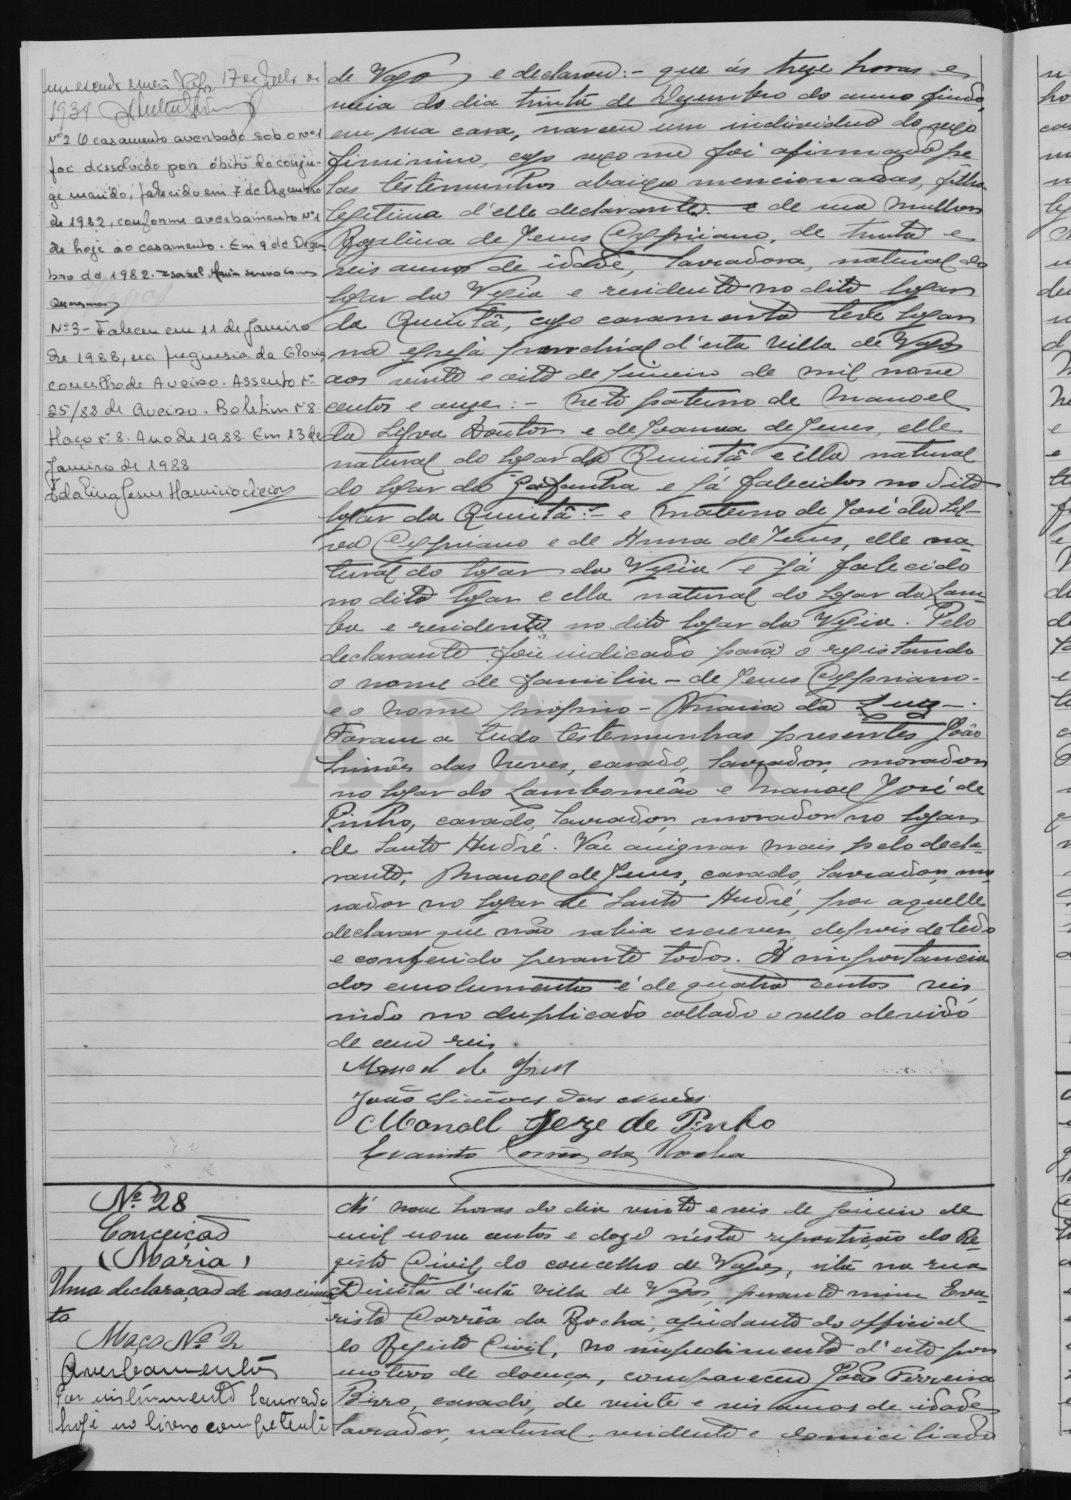 17 de Julho de
1934
Nº 2 O casamento averbado sob o nº 1
foi dissolvido por óbito do conju-
ge marido, falecido em 7 de Dezembro
de 1982, conforme averbamento Nº 1
de hoje ao casamento. Em 9 de Dezem-
bro de 1982.
Nº 3 - Faleceu em 11 de Janeiro
de 1988, na freguesia da Gloria,
concelho de Aveiro. Assento nº
25/88 de Aveiro. Boletim nº 8.
Maço nº 8. Ano de 1988. Em 13 de
Janeiro de 1988
de Vagos e declarou:- que ás treze horas e
meia do dia trinta de Dezembro do anno findo,
em sua casa, nasceu um individuo do sexo
fiminino, cujo sexo me foi afirmado pe-
las testemunhas abaixo mencionadas, filha
legitima d'elle declarante e de sua mulher
Rozalina de Jesus Cypriano, de trinta e
seis annos de idade, lavradora, natural do
logar da Vigia e residente no dito logar
da Quintã, cujo casamento teve logar
na egreja parochial d'esta villa de Vagos
aos vinte e oito de Janeiro de mil nove
centos e onze:- Neto paterno de Manoel
da Silva Doutor e de Joanna de Jesus, elle
natural do logar da Quintã e ella natural
do logar da Gafanha e já falecidos no dito
logar da Quintã:- e materno de José da Sil-
va Cypriano e de Anna de Jesus, elle na-
tural do logar da Vigia e já falecido
no dito logar e ella natural do logar da Lom-
ba e residente no dito logar da Vigia. Pelo
declarante foi indicado para o registando
o nome de familia - de Jesus Cypriano -
e o nome proprio - Maria da Luz -.
Foram a tudo testemunhas presentes João
Simões das Neves, casado, lavrador, morador
no logar do Lombomeão e Manoel José de
Pinho, casado, lavrador, morador no logar
de Santo André. Vai assignar mais pelo decla-
rante, Manoel de Jesus, casado, lavrador, mo-
rador no logar de Santo André, por aquelle
declarar que não sabia escrever, depois de lido
e conferido perante todos. A importancia
dos emolumentos é de quatro centos reis
sendo no duplicado collado o sello devido
de cem reis.
Manoel de Jesus
João Simões das Neves
Manoel Jeze de Pinho
Evaristo Corrêa da Rocha
Nº 28
Conceição
(Maria)
Uma declaração de nascimen-
to
Maço Nº 2
Averbamentos
Por instrumento lavrado
hoje no livro competente
Ás nove horas do dia vinte e seis de Janeiro de
mil nove centos e doze n'esta repartição do Re-
gisto Civil do concelho de Vagos, sita na rua
Direita d'esta villa de Vagos, perante mim Eva-
risto Corrêa da Rocha, ajudante do official
do Registo Civil, no impedimento d'este por
motivo de doença, compareceu João Ferreira
Birro, casado, de vinte e seis annos de idade,
lavrador, natural, residente e domiciliado
ADAVR